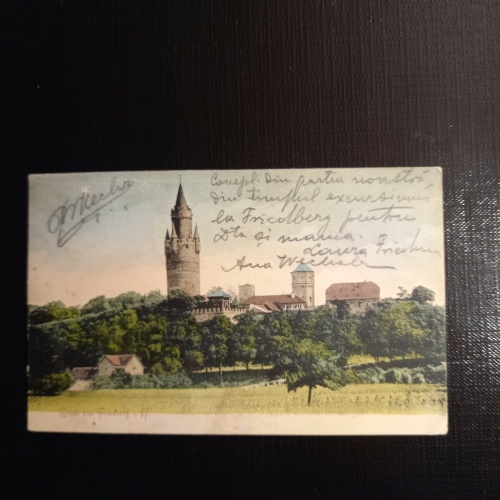 Wechsler
Compl. din partea noastră,
din timpul excursiunei
la Friedberg pentru
Dta și mama.
Laura
Ana Wechsler
Friedberg